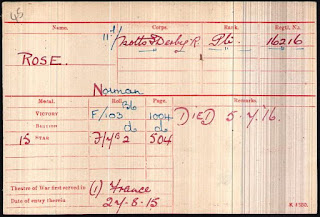 Name. Corps. Rank. Regtl. No.
11/ Notts & Derby. R. Pte. 16216
ROSE.
Norman
Medal. Roll. Page. Remarks.
VICTORY F/103 B16 1094 DIED 5.7.16.
BRITISH do do
15 STAR F/4B2 504
Theatre of War first served in (1) France
Date of entry therein 27-8-15
K 1380.